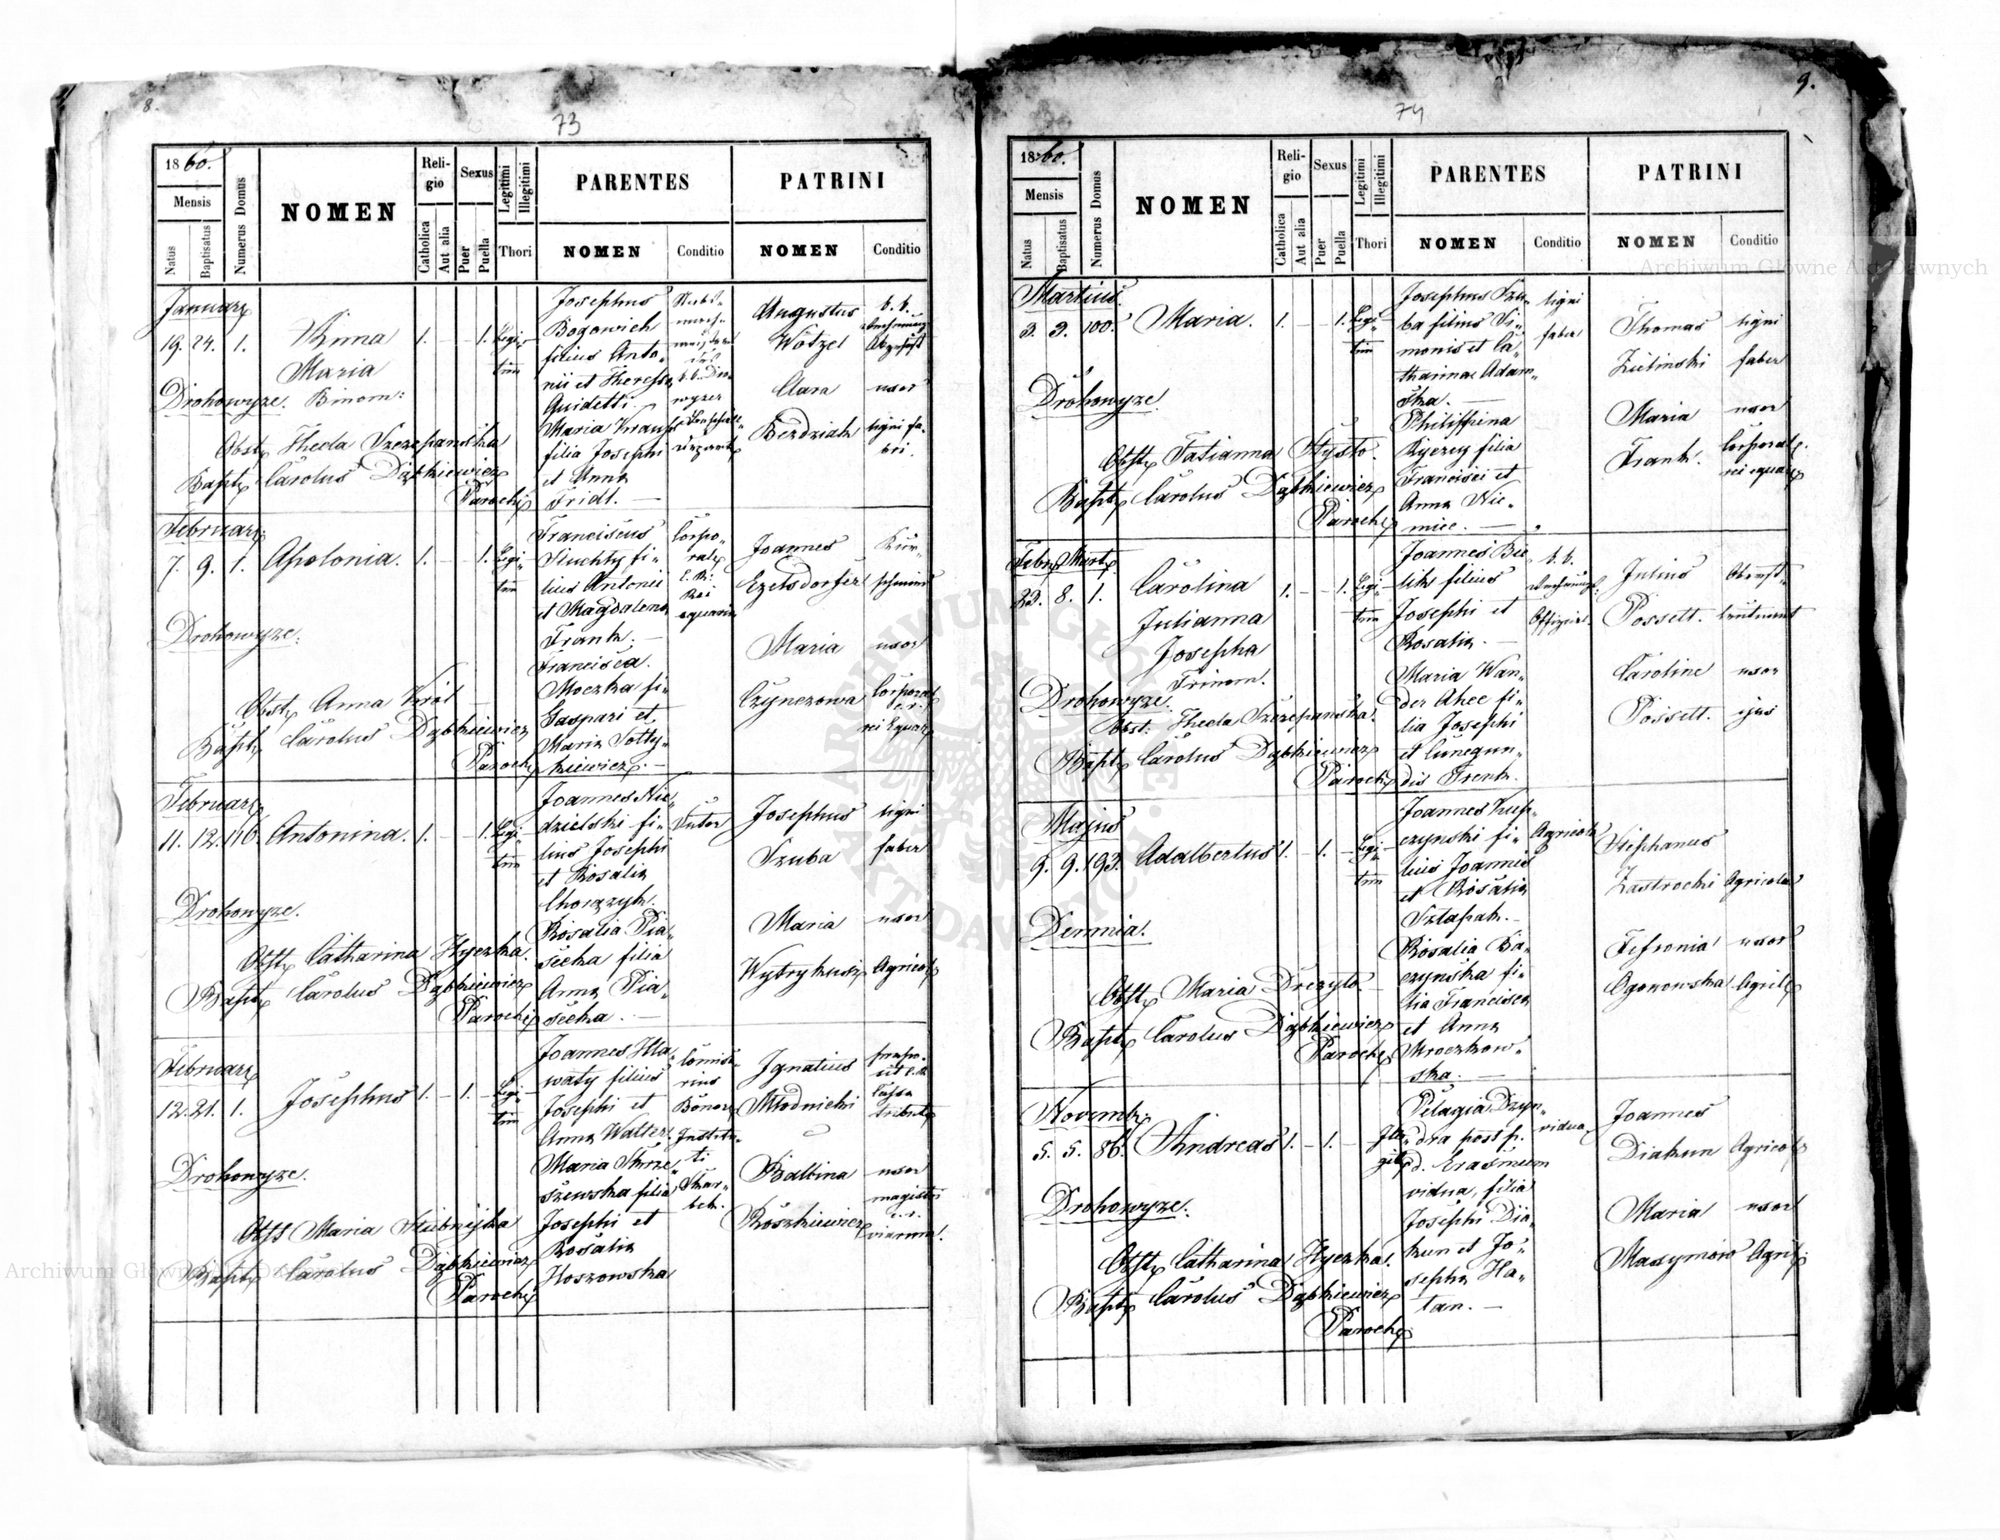 8.
73
1860.
Mensis
Natus
Baptisatus
Numerus Domus
NOMEN
Religio
Catholica
Aut alia
Sexus
Puer
Puella
Legitimi
Illegitimi
Thori
PARENTES
NOMEN
Conditio
PATRINI
NOMEN
Conditio
Januar
19. 24. 1.
Anna
Maria
Binom:
1. - - 1. Legi-
tim
Drohowyże.
Obst Thecla Szczepańska
Bapt Carolus Dąbkiewicz
Paroch
Josephus
Bogowich
filius Anto-
nii et Theressa
Guidetti.
Maria Kraus
filia Josephi
et Anna
Fridt. —
Augustus
Wötzel
Clara
Berdziak
uxor
ligni fa-
bri.
Februar
7. 9. 1. Apolonia. 1. - - 1. Legi-
tim
Drohowyże.
Obst Anna Król
Bapt Carolus Dąbkiewicz
Paroch
Franciscus
Stuchty fi-
lius Antonii
et Magdalena
Frank. —
Francisca.
Moczka fi-
Gaspari et
Maria Sołty-
kiewicz. —
Corpo-
ral
Joannes
Ezelsdorfer
Maria
Czynczowa
uxor
Corporal
rei Equar
Februar
11. 12. 116. Antonina. 1. - - 1. Legi-
tim
Drohowyże.
Obst Catharina Hyczka.
Bapt Carolus Dąbkiewicz
Paroch
Joannes Nie-
dzielski fi-
lius Josephi
et Rosalia
Chorzyk.
Rosalia Pia-
secka filia
Anna Pia-
secka. —
Sutor
Josephus
Szuba
Maria
Wytrykusz
ligni
faber
uxor
Agricol
Februar
12. 21. 1. Josephus 1. - 1. - Legi-
tim
Drohowyże.
Obst Maria Stubnicka
Bapt Carolus Dąbkiewicz
Paroch
Joannes Hla-
waty filius
Josephi et
Anna Walter.
Maria Skrze-
szewska filia
Josephi et
Rosalia
Hoszowska
Comisa-
rius
Bonor
Institu-
ti
Skar-
bek.
Ignatius
Młodnicki
Balbina
Roszkiewicz
uxor
magistri
viarum.
9.
74
1860.
Mensis
Natus
Baptisatus
Numerus Domus
NOMEN
Religio
Catholica
Aut alia
Sexus
Puer
Puella
Legitimi
Illegitimi
Thori
PARENTES
NOMEN
Conditio
PATRINI
NOMEN
Conditio
Martius.
2. 2. 100. Maria. 1. - - 1. Legi-
tim
Drohowyże
Obst Tatianna Hysto.
Bapt Carolus Dąbkiewicz
Paroch
Josephus Szu-
ba filius Si-
monis et Ca-
tharinae Adam-
ska. —
Philippina
Ryczey filia
Francisci et
Anna Nie-
miec. —
ligni
faber
Thomas
Zulinski
Maria
Frank.
ligni
faber
uxor
Corporal
rei equar
Febr Mart
23. 8. 1.
Carolina
Julianna
Josepha
Trinom.
1. - - 1. Legi-
tim
Drohowyże.
Obst: Thecla Szczepańska.
Bapt Carolus Dąbkiewicz
Paroch
Joannes Bie-
lik filius
Josephi et
Rosalia. —
Maria Wan-
der Ahee fi-
lia Josephi
et Cunegun-
dis Frenk.
k. k.
Rechnungs-
Offizier.
Julius
Possett.
Caroline
Possett.
Oberst-
leutenant
uxor
ejus
Majus
9. 9. 193. Adalbertus 1. - 1. - Legi-
tim
Demnia.
Obst Maria Drozyło.
Bapt Carolus Dąbkiewicz
Paroch
Joannes Kup-
czynski fi-
lius Joannis
et Rosalia
Szłapak. —
Rosalia Ba-
czynska fi-
lia Francisca
et Anna
Mroczkow-
ska. —
Agricola
Stephanus
Zastrocki
Fefronia
Ogonowska
Agricola
uxor
Agril
Novembr
5. 5. 86. Andreas 1. - 1. - Ille-
git
Drohowyże.
Obst Catharina Hyczka.
Bapt Carolus Dąbkiewicz
Paroch
Pelagia Dzyn-
dra post p.
d. Erasmum
vidua, filia
Josephi Dia-
kun et Jo-
sepha Ha-
tan. —
vidua
Joannes
Diakun
Maria
Maxymow
Agricol
uxor
Agril
Archiwum Główne Akt Dawnych
ARCHIWUM GŁÓWNE AKT DAWNYCH